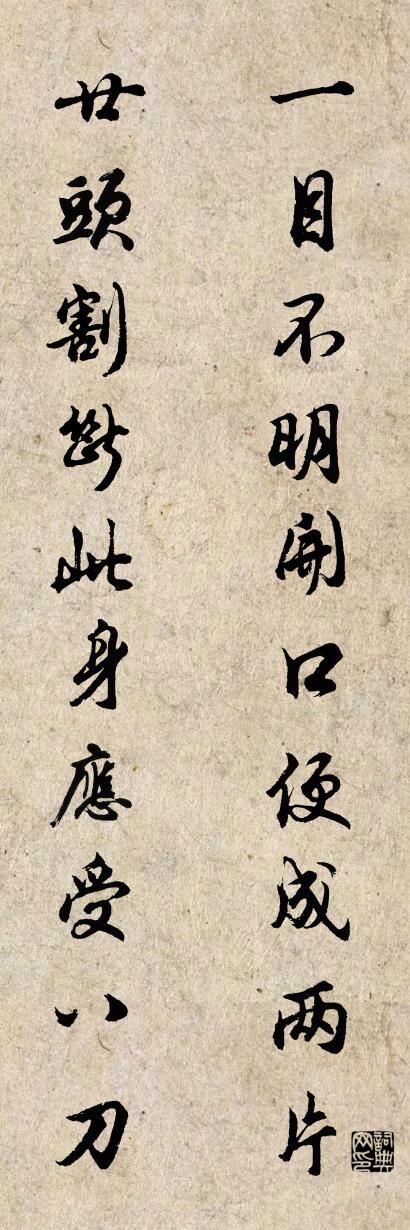 一目不明開口便成两片
廿頭割斷此身應受八刀
詞典
网印